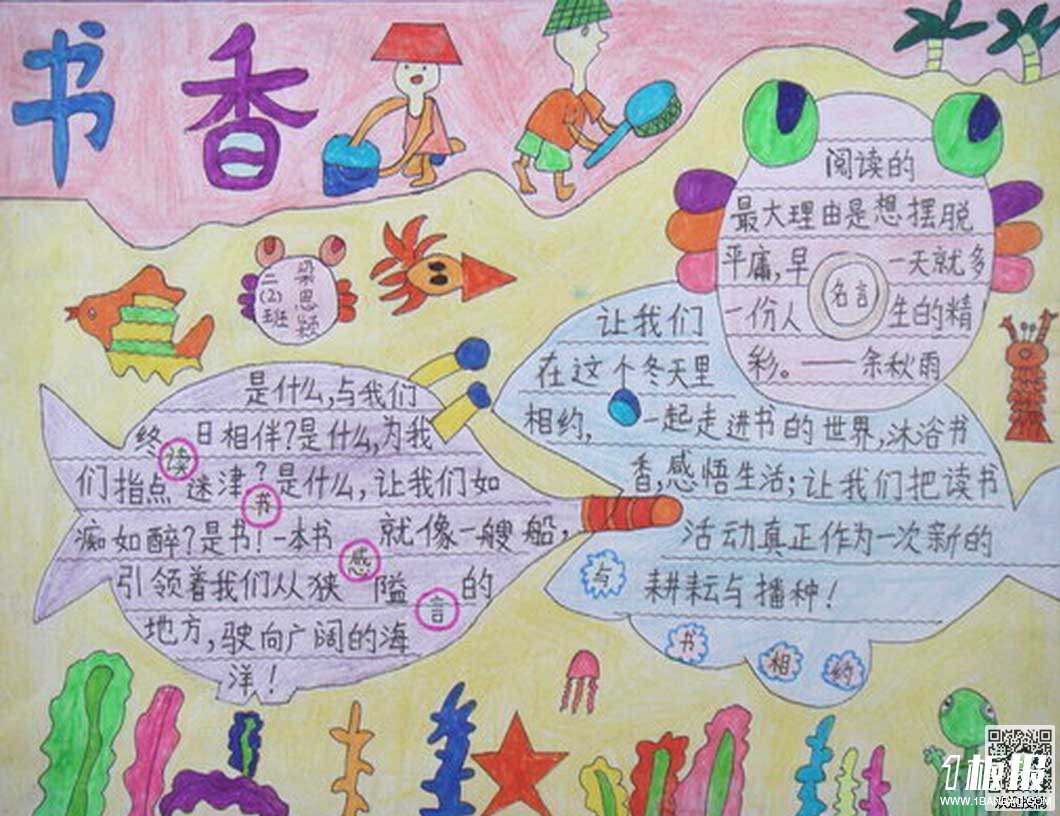 书香
梁思颖
二(2)班
阅读的
最大理由是想摆脱
平庸,早一天就多
一份人生的精
彩。——余秋雨
名言
是什么,与我们
终日相伴?是什么,为我
们指点迷津?是什么,让我们如
痴如醉?是书!一本书就像一艘船,
引领着我们从狭隘的
地方,驶向广阔的海
洋!
读书感言
让我们
在这个冬天里
相约,一起走进书的世界,沐浴书
香,感悟生活;让我们把读书
活动真正作为一次新的
耕耘与播种!
与书相约
1板报
WWW.1BANBAO.COM